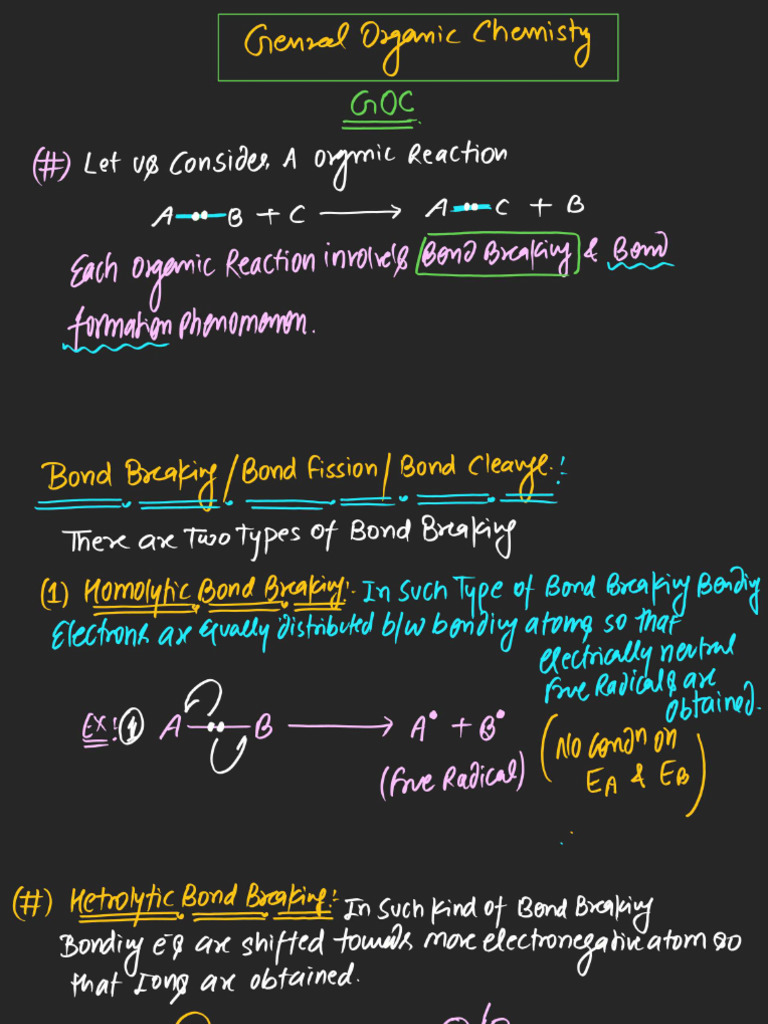 Genral Organic Chemisty
GOC
(#) Let us Consider A organic Reaction
A—B + C ⟶ A—C + B
Each Organic Reaction involve's Bond Breaking & Bond
formation phenomenon.
Bond Breaking / Bond fission / Bond Cleavge :
There are Two types of Bond Breaking
(1) Homolytic Bond Breaking:- In Such Type of Bond Breaking Bonding
Electrons are Equally distributed b/w bonding atoms so that
electrically neutral
free Radicals are
obtained.
Ex: (1) A—B ⟶ A• + B•
(free Radical)
(No Condn on
EA & EB)
(#) Hetrolytic Bond Breaking:- In Such Kind of Bond Breaking
Bonding e-s are shifted towards more electronegative atom so
that Ions are obtained.